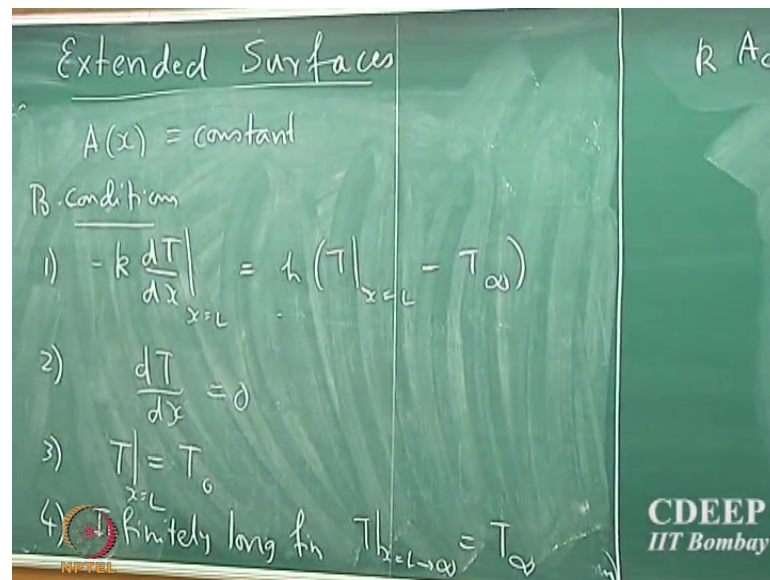 Extended Surfaces
k Ac
A(x) = constant
B. conditions
1) -k dT/dx|x=L = h (T|x=L - T∞)
2) dT/dx = 0
3) T|x=L = T0
4) Infinitely long fin T|x=L→∞ = T∞
NPTEL
CDEEP
IIT Bombay